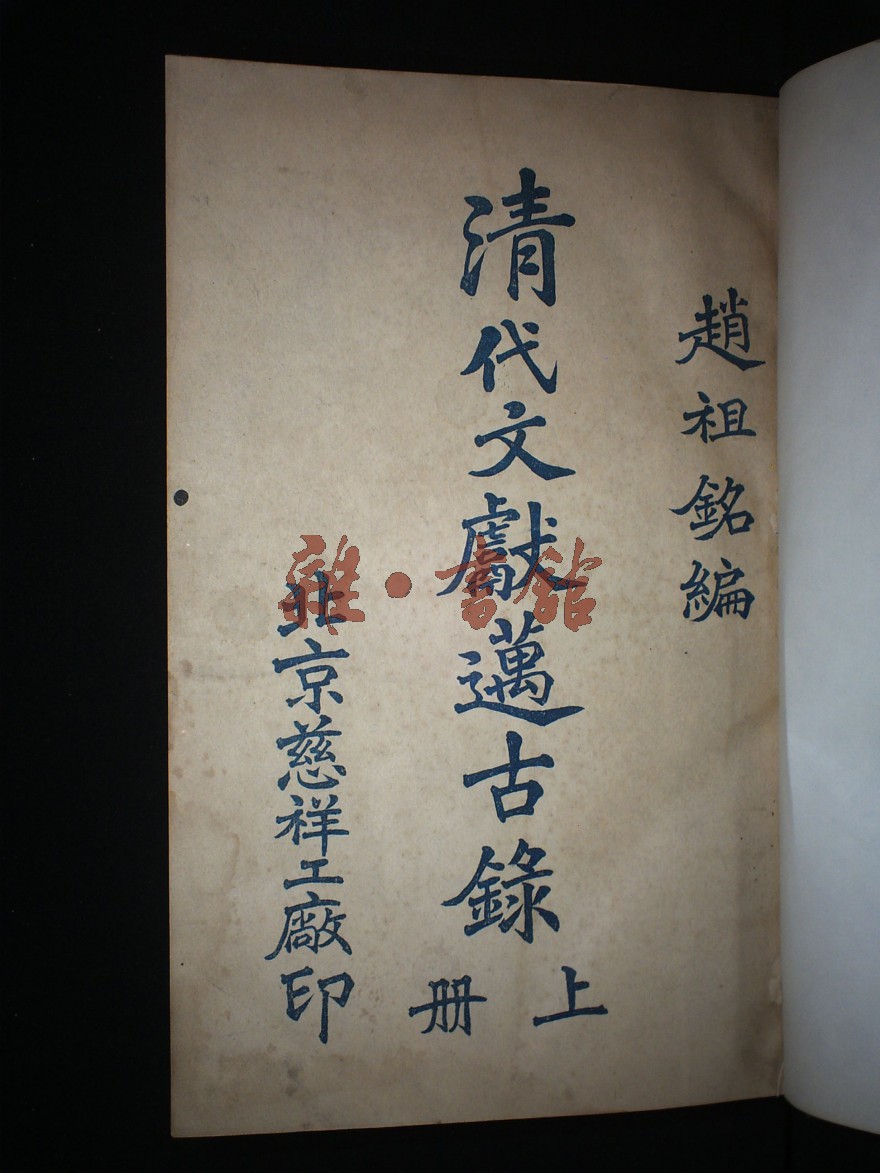 趙祖銘編
清代文獻邁古錄
上册
北京慈祥工廠印
雜·書館